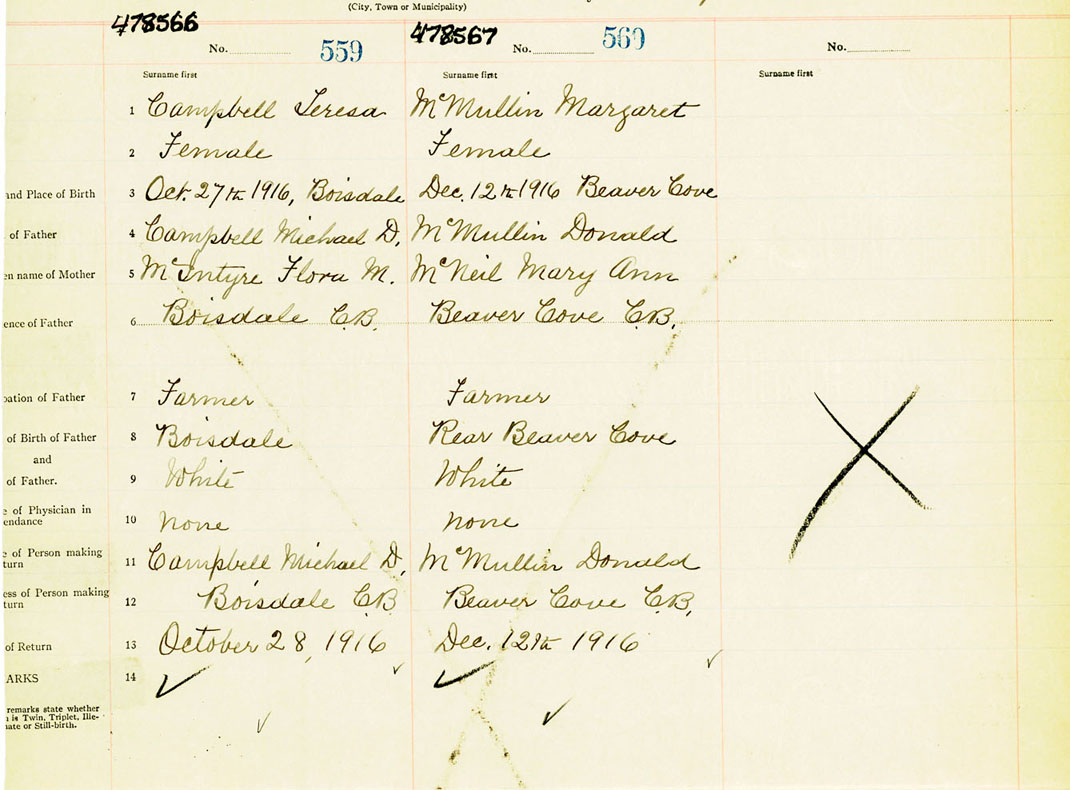 (City, Town or Municipality)
478566 478567
No. 559 No. 560 No.
Surname first Surname first Surname first
1 Campbell Teresa McMullin Margaret
2 Female Female
and Place of Birth 3 Oct. 27th 1916, Boisdale Dec. 12th 1916 Beaver Cove
of Father 4 Campbell Michael D. McMullin Donald
en name of Mother 5 McIntyre Flora M. McNeil Mary Ann
ence of Father 6 Boisdale C.B. Beaver Cove C.B.
pation of Father 7 Farmer Farmer
of Birth of Father 8 Boisdale Rear Beaver Cove
and
of Father. 9 White White
e of Physician in
endance 10 none none
e of Person making
turn 11 Campbell Michael D. McMullin Donald
ess of Person making
turn 12 Boisdale C.B. Beaver Cove C.B.
of Return 13 October 28, 1916 Dec. 12th 1916
ARKS 14
remarks state whether
n is Twin, Triplet, Ille-
nate or Still-birth.